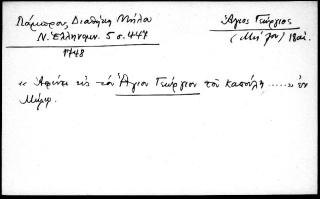 Πάμπρος, Διαθήκη Μήλου
Ν. Ἑλληνομν. 5 σ. 447
1748
Ἅγιος Γεώργιος
(Μῆλος) 18 αἰ.
« Ἀφίνω εἰς τὸν Ἅγιον Γεώργιον τοῦ Καστέλη ...... » ἐν
Μήλῳ.